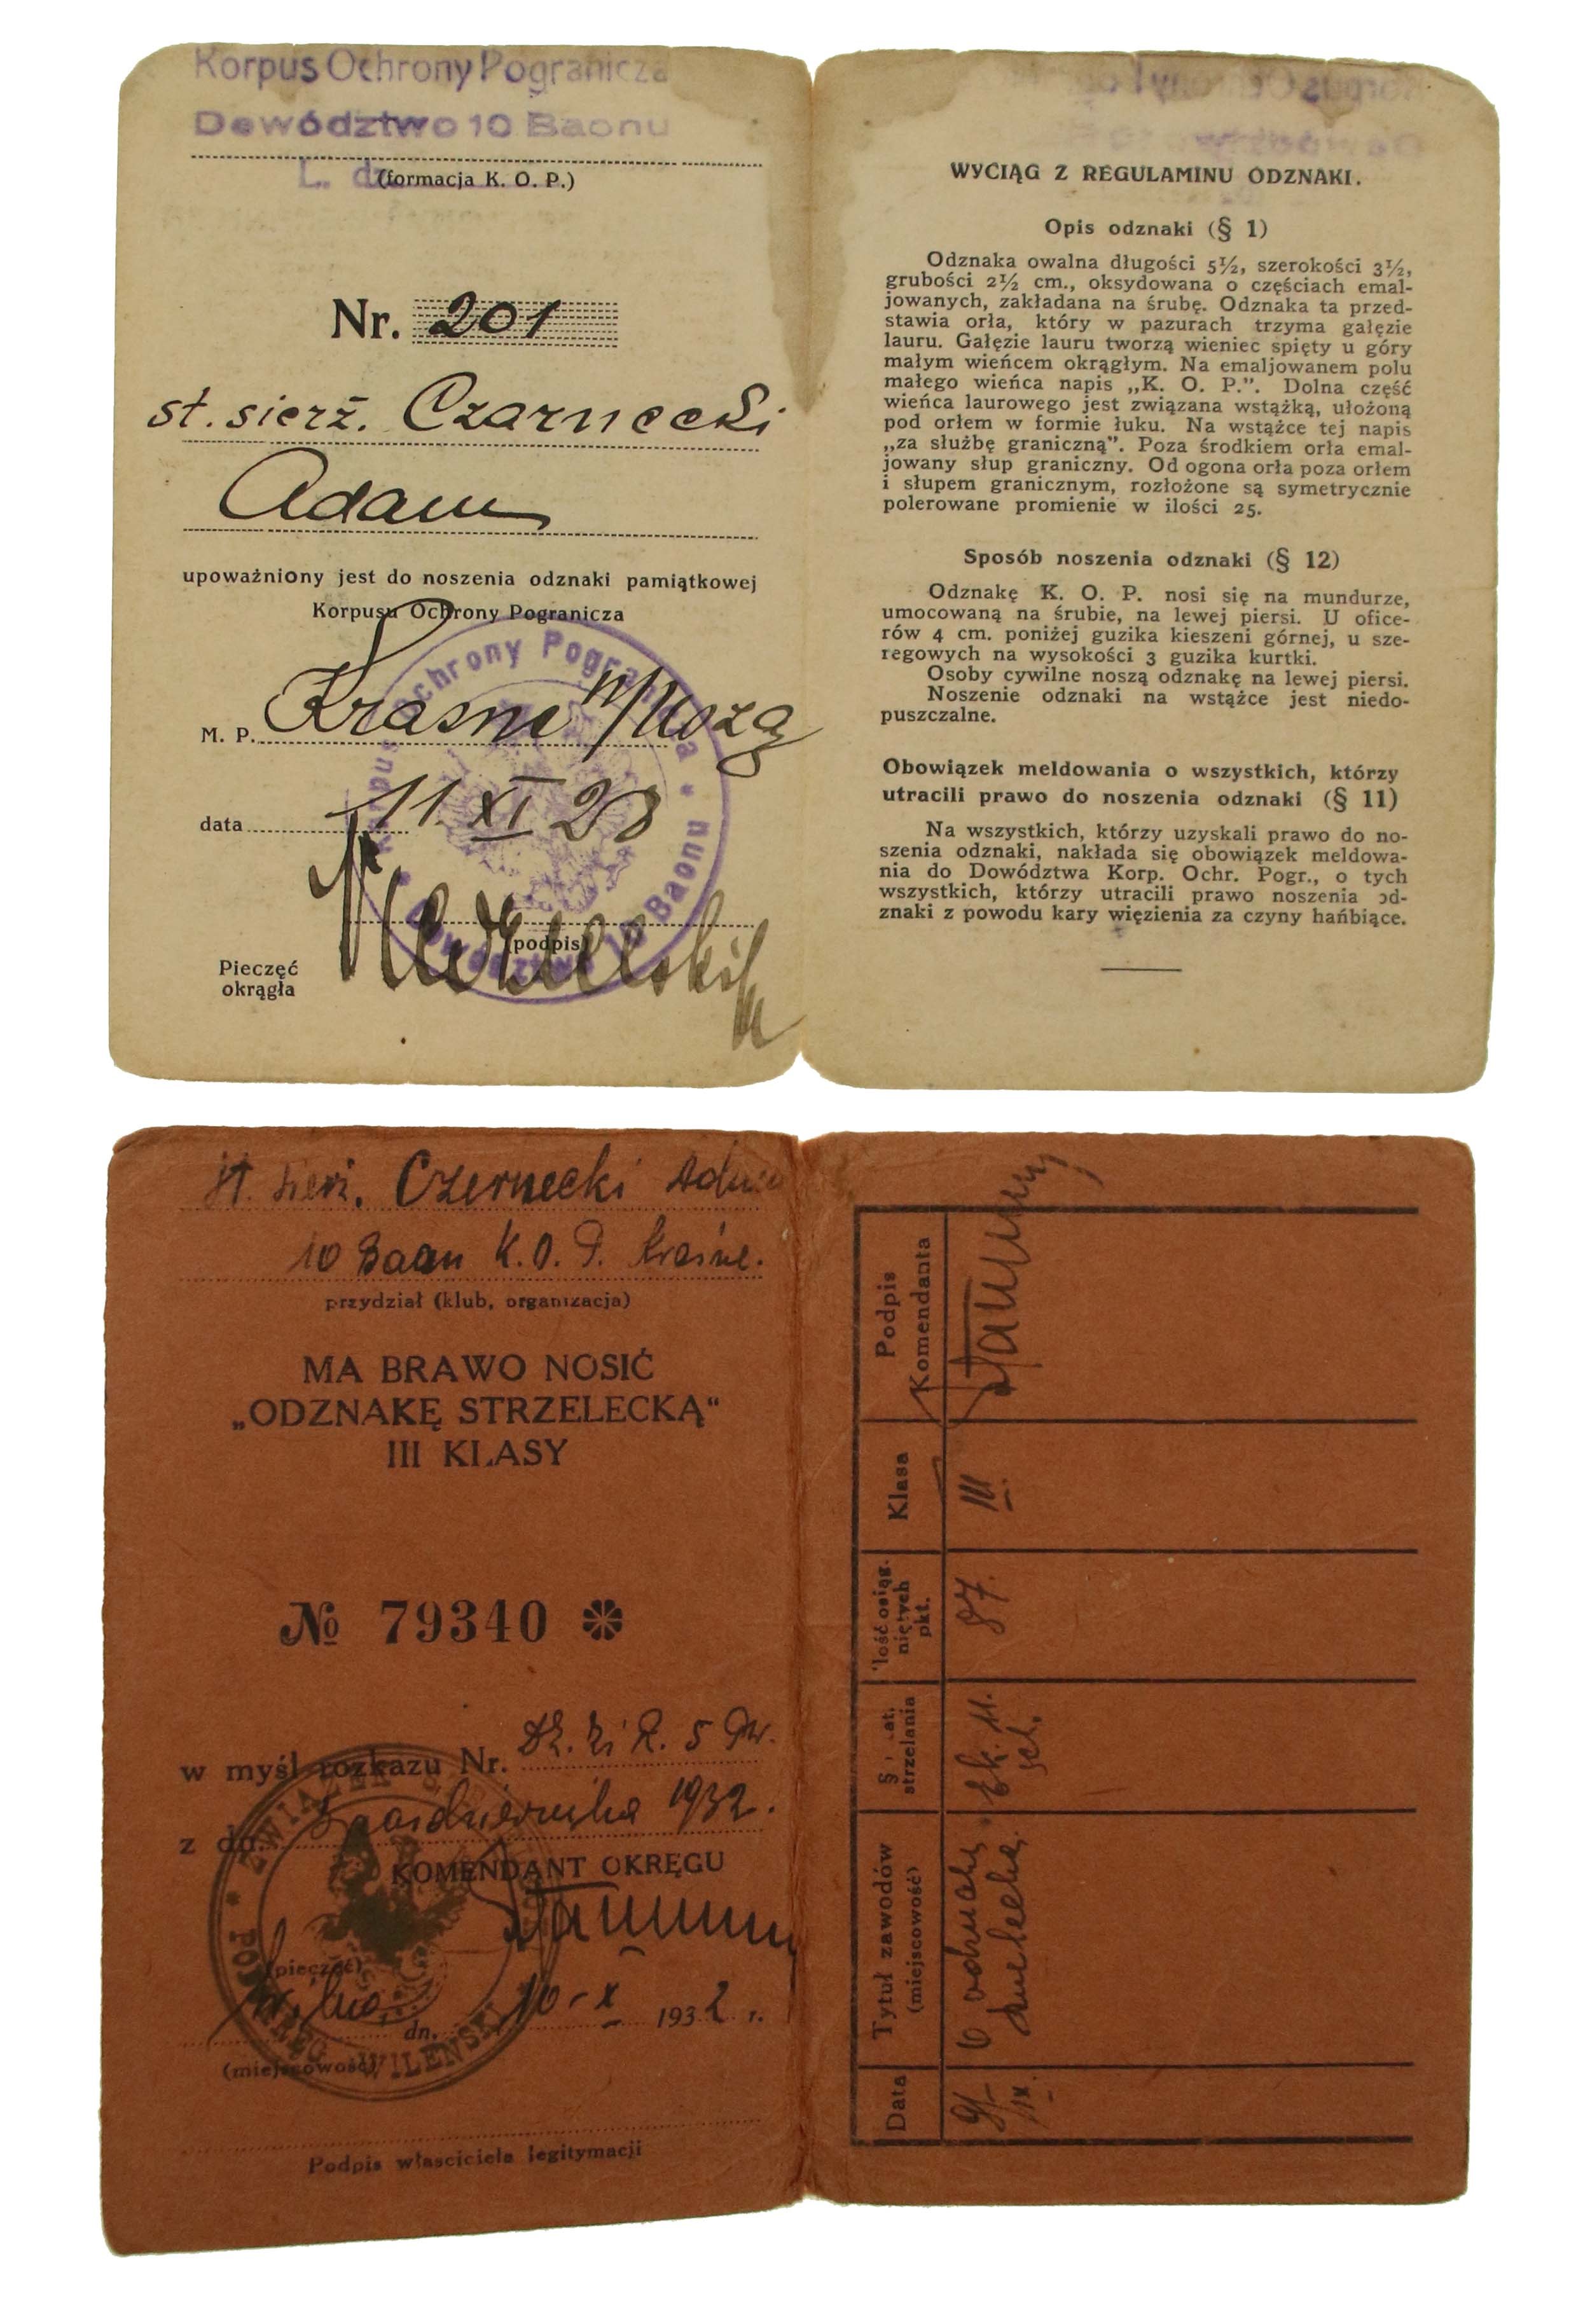 Korpus Ochrony Pogranicza
Dewództwo 10 Baonu
L. dz.
(formacja K. O. P.)
Nr. 201
st. sierż. Czarnecki
Adam
upoważniony jest do noszenia odznaki pamiątkowej
Korpusu Ochrony Pogranicza
M. P. Krasne n/Uszą
data 11. XI 28
(podpis)
Pieczęć
okrągła
Korpus Ochrony Pogranicza * Dowództwo 10 Baonu *
WYCIĄG Z REGULAMINU ODZNAKI.
Opis odznaki (§ 1)
Odznaka owalna długości 5½, szerokości 3½,
grubości 2½ cm., oksydowana o częściach emal-
jowanych, zakładana na śrubę. Odznaka ta przed-
stawia orła, który w pazurach trzyma gałęzie
lauru. Gałęzie lauru tworzą wieniec spięty u góry
małym wieńcem okrągłym. Na emaljowanem polu
małego wieńca napis „K. O. P.”. Dolna część
wieńca laurowego jest związana wstążką, ułożoną
pod orłem w formie łuku. Na wstążce tej napis
„za służbę graniczną”. Poza środkiem orła emal-
jowany słup graniczny. Od ogona orła poza orłem
i słupem granicznym, rozłożone są symetrycznie
polerowane promienie w ilości 25.
Sposób noszenia odznaki (§ 12)
Odznakę K. O. P. nosi się na mundurze,
umocowaną na śrubie, na lewej piersi. U ofice-
rów 4 cm. poniżej guzika kieszeni górnej, u sze-
regowych na wysokości 3 guzika kurtki.
Osoby cywilne noszą odznakę na lewej piersi.
Noszenie odznaki na wstążce jest niedo-
puszczalne.
Obowiązek meldowania o wszystkich, którzy
utracili prawo do noszenia odznaki (§ 11)
Na wszystkich, którzy uzyskali prawo do no-
szenia odznaki, nakłada się obowiązek meldowa-
nia do Dowództwa Korp. Ochr. Pogr., o tych
wszystkich, którzy utracili prawo noszenia od-
znaki z powodu kary więzienia za czyny hańbiące.
st. sierż. Czernecki Adam
10 Baon K. O. P. Kraśne.
przydział (klub, organizacja)
MA BRAWO NOSIĆ
„ODZNAKĘ STRZELECKĄ“
III KLASY
№ 79340
w myśl rozkazu Nr. 5
z dn. października 1932.
KOMENDANT OKRĘGU
(pieczęć)
Wilno, dn. 10-X 1932 r.
(miejscowość)
Podpis właściciela legitymacji
ZWIĄZEK * PODOKRĘG WILEŃSKI
Data
Tytuł zawodów
(miejscowość)
strzelania
Ilość osiąg-
niętych
pkt.
Klasa
Podpis
Komendanta
9/
IX.
87.
III